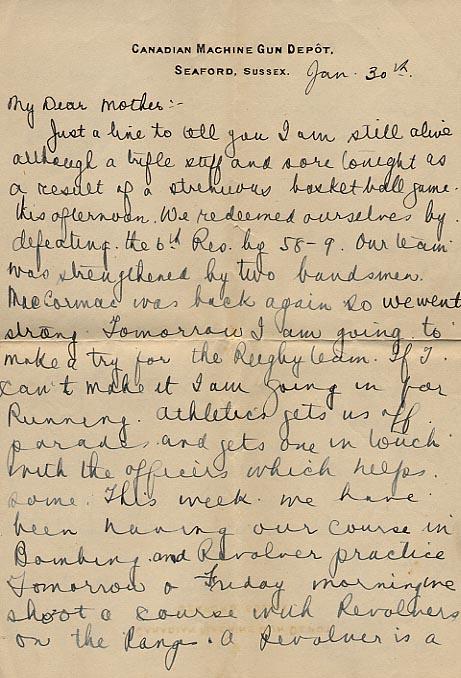 CANADIAN MACHINE GUN DEPÔT,
SEAFORD, SUSSEX. Jan. 30th.
My Dear Mother:-
Just a line to tell you I am still alive
although a trifle stiff and sore tonight as
a result of a strenuous basketball game
this afternoon. We redeemed ourselves by
defeating the 6th Res. by 58-9. Our team
was strengthened by two bandsmen.
MacCormac was back again so we went
strong. Tomorrow I am going to
make a try for the Rugby team. If I
can't make it I am going in for
Running. Athletics gets us off
parade and gets one in touch
with the officers which helps
some. This week we have
been having our course in
Bombing and Revolver practice
Tomorrow o Friday morning we
shoot a course with Revolvers
on the Range. A Revolver is a